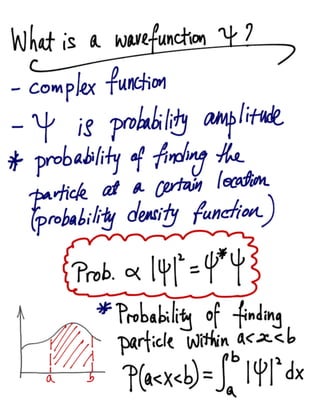 What is a wavefunction Ψ?
- complex function
- Ψ is probability amplitude
* probability of finding the
particle at a certain location
(probability density function)
Prob. ∝ |Ψ|² = Ψ*Ψ
* Probability of finding
particle within a<x<b
P(a<x<b) = ∫ₐᵇ |Ψ|² dx
a b